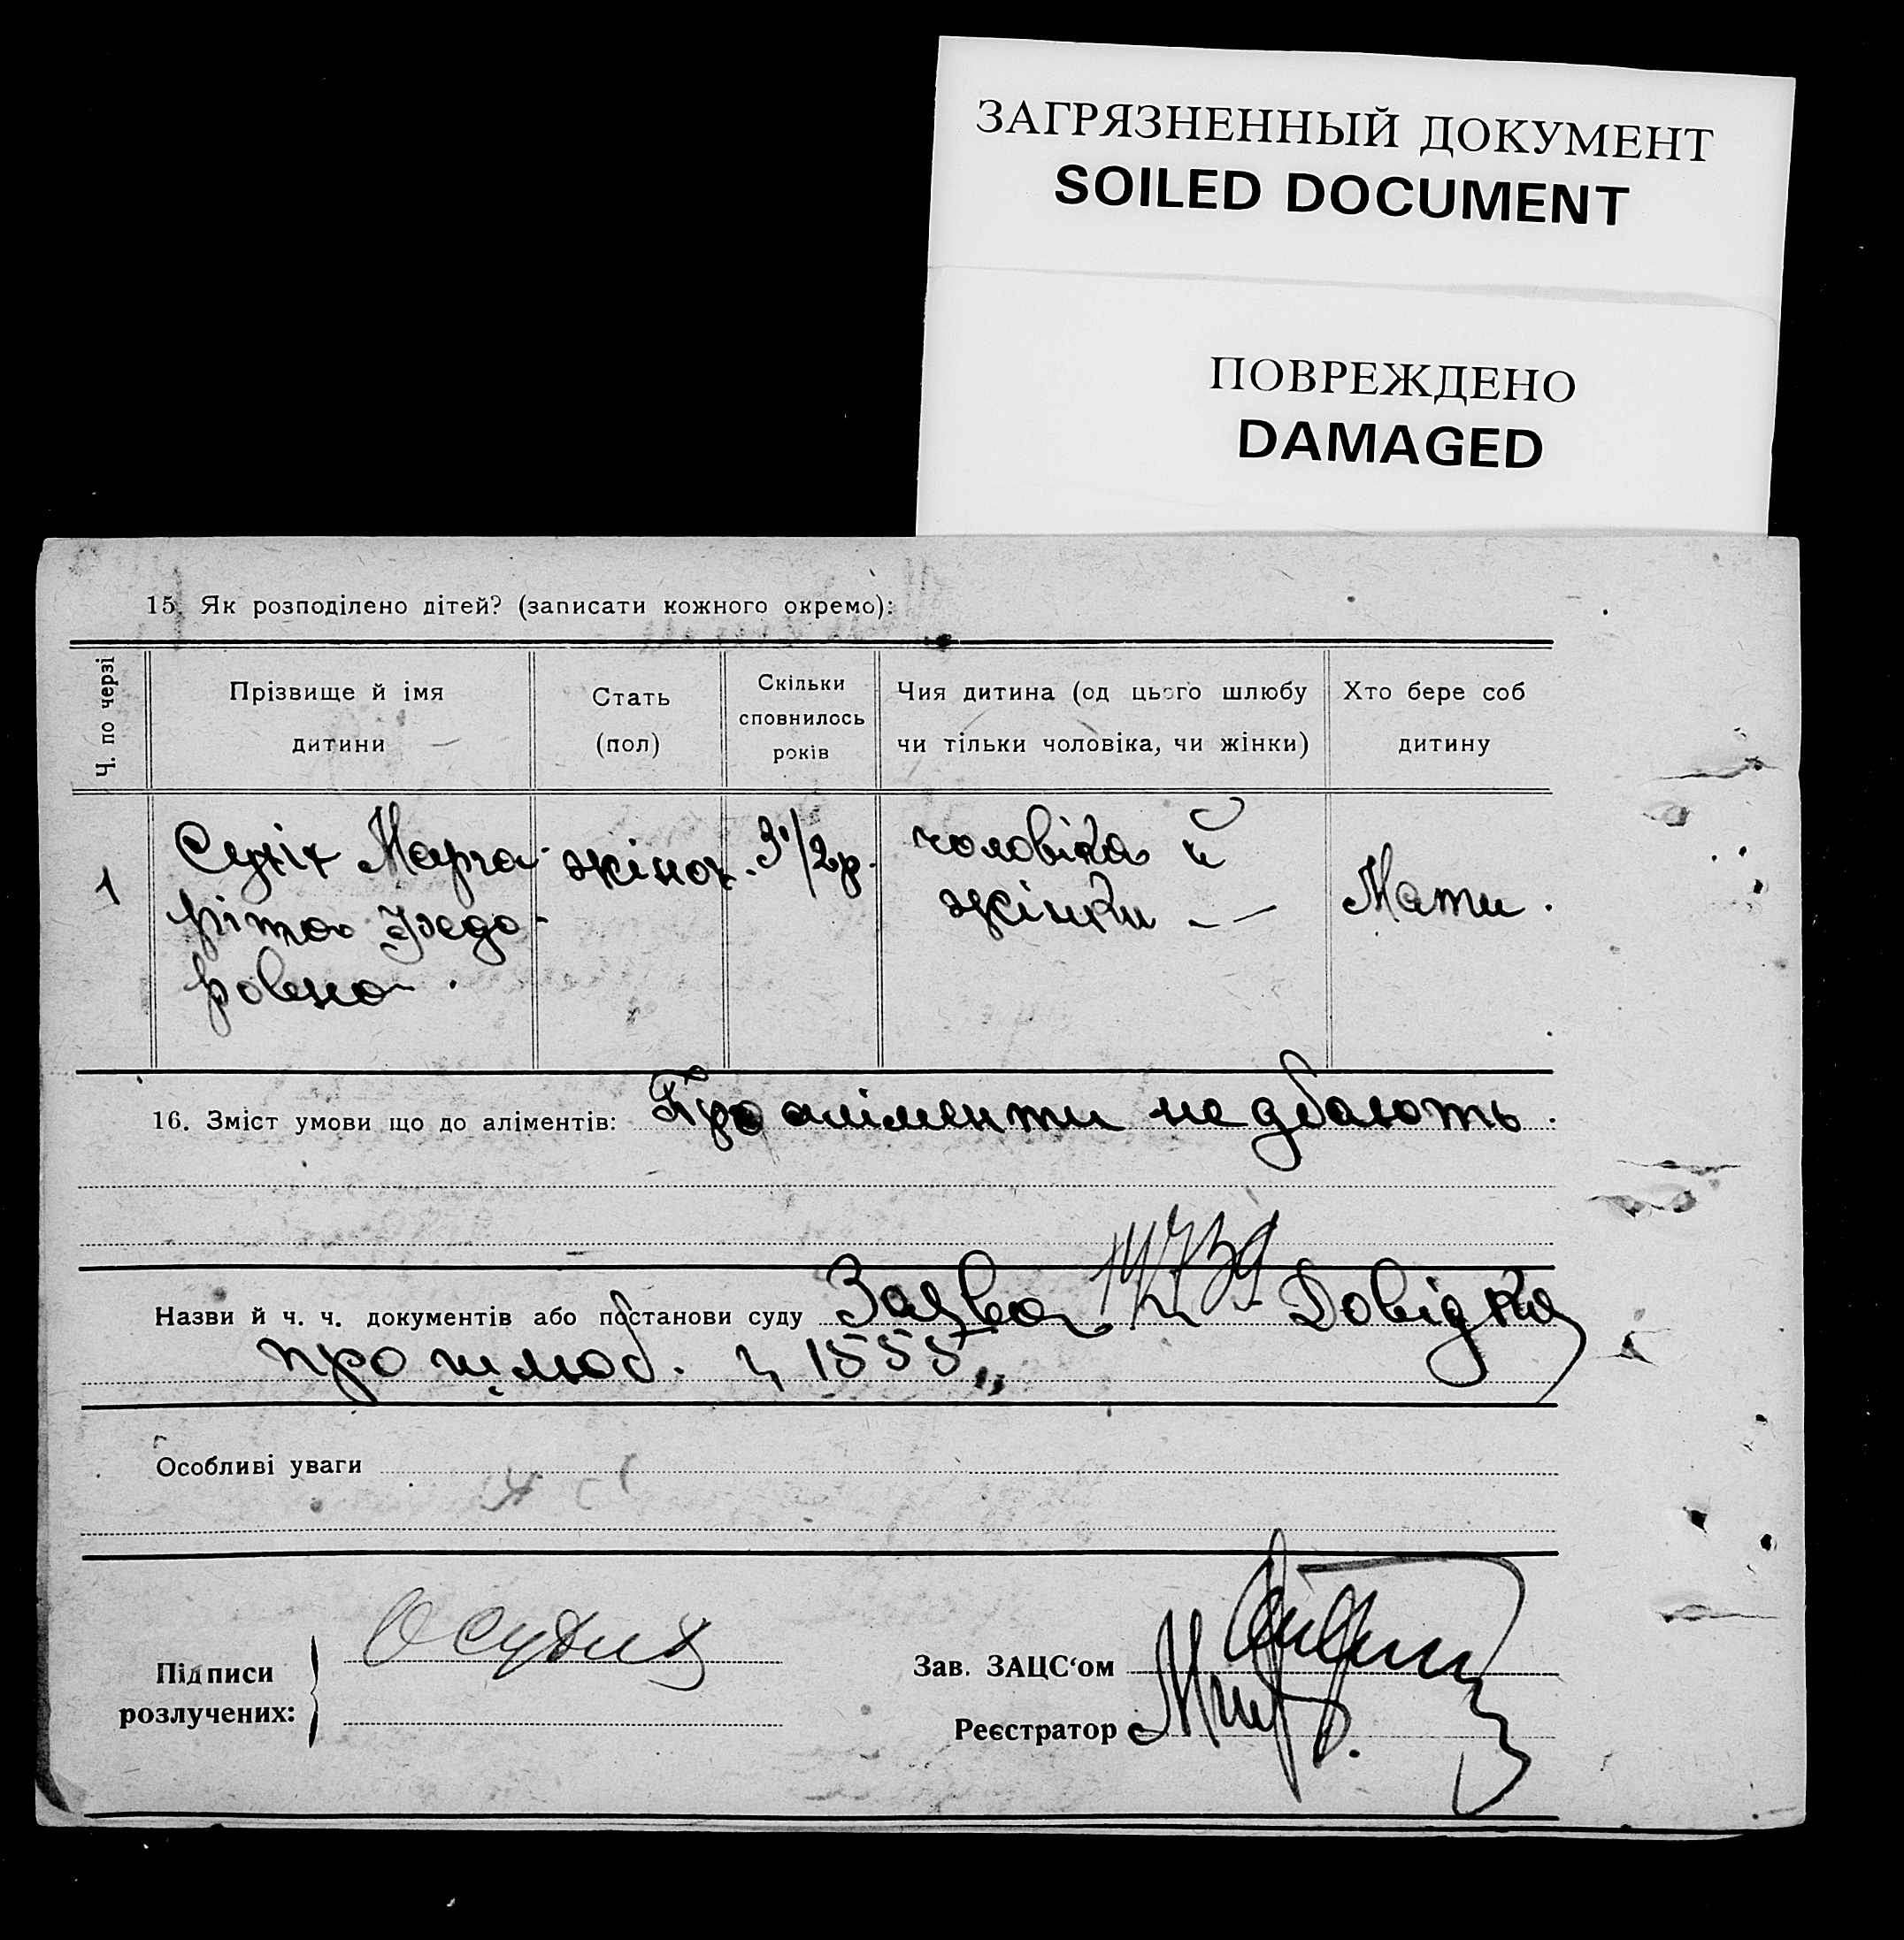 ЗАГРЯЗНЕННЫЙ ДОКУМЕНТ
SOILED DOCUMENT
ПОВРЕЖДЕНО
DAMAGED
15. Як розподілено дітей? (записати кожного окремо):
Ч. по черзі
Прізвище й імя
дитини
Стать
(пол)
Скільки
сповнилось
років
Чия дитина (од цього шлюбу
чи тільки чоловіка, чи жінки)
Хто бере соб
дитину
1
Марга-
ріта Ізидо-
ровна.
жіноч.
3 1/2 р.
чоловіка й
жінки
Мати.
16. Зміст умови що до аліментів: Про аліменти не дбають.
Назви й ч. ч. документів або постанови суду Заява Довідка
про шлюб. ч 1555
Особливі уваги
Підписи
розлучених:
Зав. ЗАЦС‘ом
Реєстратор